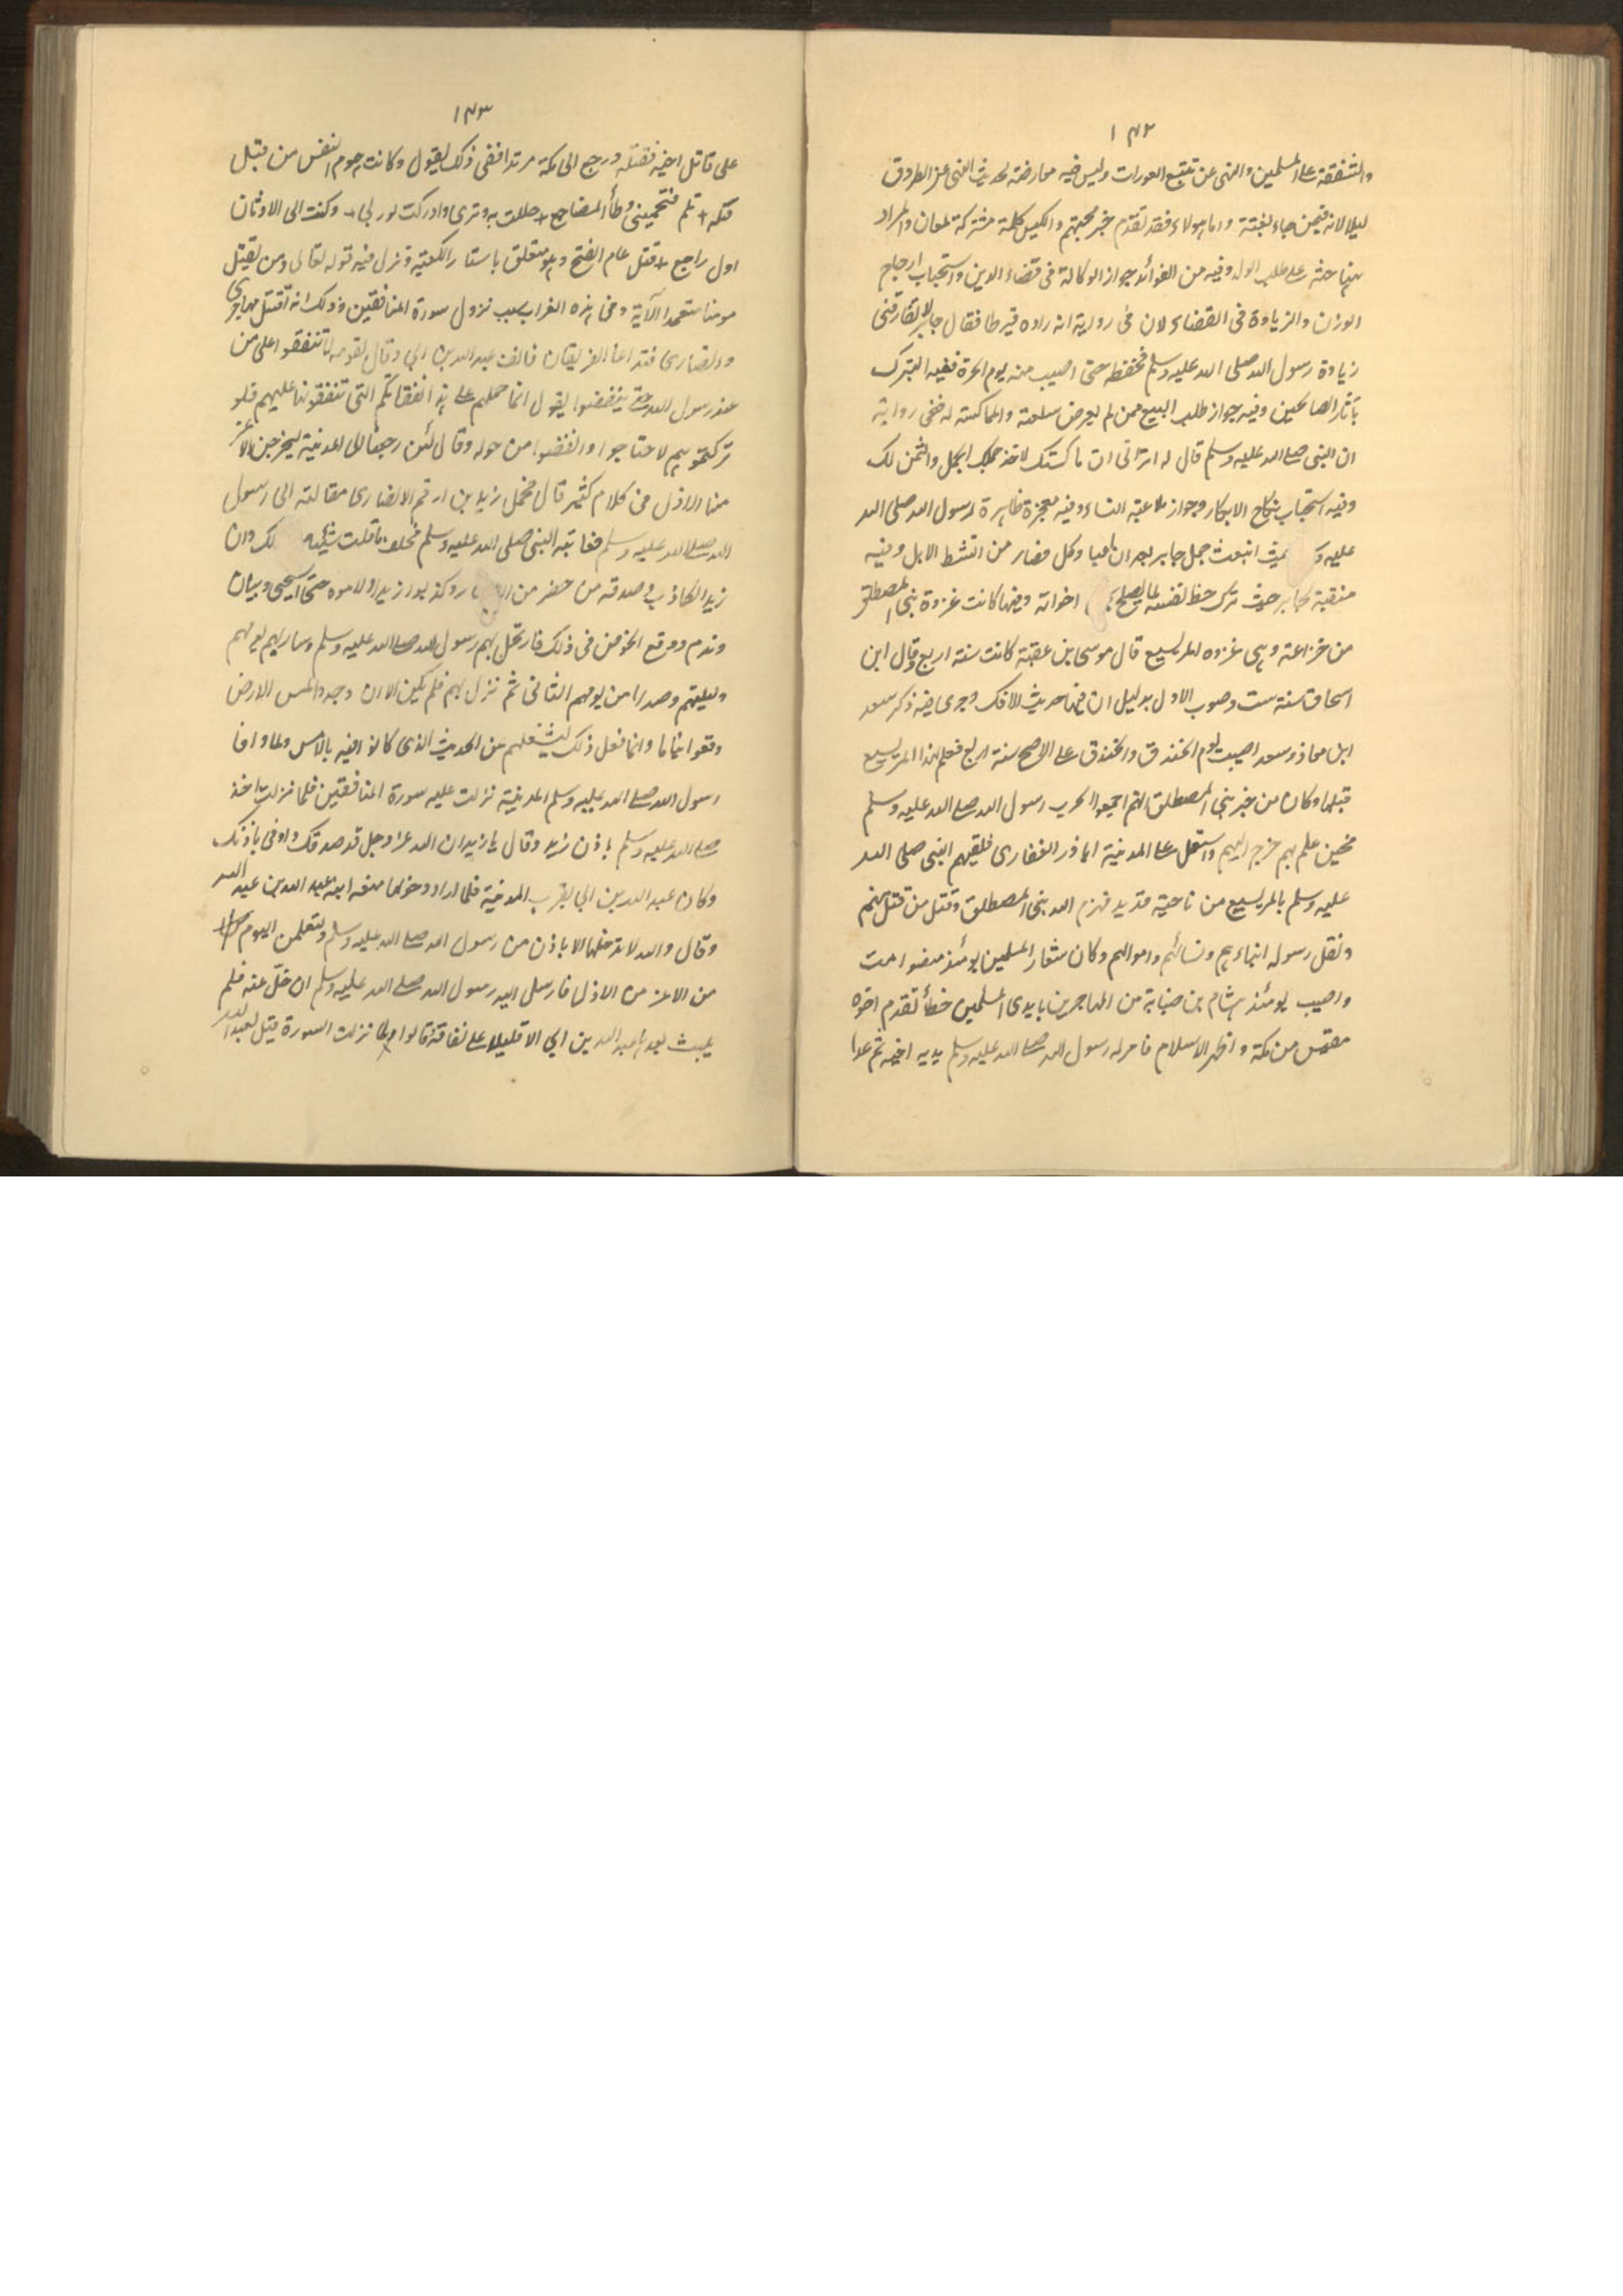 ١٤٢
والشفقة على المسلمين والنهى عن تتبع العورات وليس فيه معارضة لحديث النهى عن الطروق
ليلا لانه فيمن جاء بغتة واما هولاء فقد تقدم خبر مجيئهم والكيس كلمة مشتركة لمعان والمراد
هنا حثه على طلب الولد وفيه من الفوائد جواز الوكالة فى قضاء الدين واستحباب ارجاح
الوزان والزيادة فى القضاء لان فى رواية انه زاده قيرطا فقال جابر لا تفارقنى
زيادة رسول الله صلى الله عليه وسلم فحفظه حتى اصيب منه يوم الحرة ففيه التبرك
بآثار الصالحين وفيه جواز طلب البيع ممن لم يعرض سلعته والمماكسة له ففى رواية
ان النبى صلى الله عليه وسلم قال له اترانى ان ماكستك لاخذ جملك الجمل والثمن لك
وفيه استحباب نكاح الابكار وجواز ملاعبة النساء وفيه معجزة ظاهرة لرسول الله صلى الله
عليه حيث انبعث جمل جابر بعد ان اعيا وكل فصار من انشط الابل وفيه
منقبة لجابر حيث ترك حظ نفسه لما يصلح اخواته وفيها كانت غزوة بنى المصطلق
من خزاعة وهى غزوه المريسيع قال موسى بن عقبة كانت سنة اربع وقال ابن
اسحاق سنة ست وصوب الاول بدليل ان فيها حديث الافك وجرى فيه ذكر سعد
ابن معاذ وسعد اصيب يوم الخندق والخندق على الاصح سنة اربع فعلم ان المريسيع
قبلها وكان من خبر بنى المصطلق انهم اجمعوا لحرب رسول الله صلى الله عليه وسلم
فحين علم بهم خرج اليهم واستعمل على المدينة ابا ذر الغفارى فلقيهم النبى صلى الله
عليه وسلم بالمريسيع من ناحية قديد فهزم الله بنى المصطلق وقتل من قتل منهم
ونفل رسوله ابناءهم ونسائهم واموالهم وكان شعار المسلمين يومئذ منصور امت
واصيب يومئذ هشام بن صبابة من المهاجرين بايدى المسلمين خطأ فقدم اخوه
مقيس من مكة واظهر الاسلام فامر له رسول الله صلى الله عليه وسلم بدية اخيه ثم عدا
١٤٣
على قاتل اخيه فقتله ورجع الى مكة مرتدا ففى ذلك يقول وكانت هموم النفس من قبل
قتله + تلم فتحمينى وطأ المضاجع + حللت به وترى وادركت ثورتى + وكنت الى الاوثان
اول راجع + قتل عام الفتح وهو متعلق باستار الكعبة ونزل فيه قوله تعالى ومن يقتل
مومنا متعمدا الآية وفى هذه الغزاة سبب نزول سورة المنافقين وذلك انه اقتتل مهاجرى
وانصارى فتداعا الفريقان فانف عبد الله بن ابى وقال لقومه لا تنفقوا على من
عند رسول الله حتى ينفضوا يقول انما حملهم على هذا نفقاتكم التى تنفقونها عليهم فلو
تركتموهم لاحتاجوا وانفضوا من حوله وقال لئن رجعنا الى المدينة ليخرجن الاعز
منها الاذل فى كلام كثير قال فحمل زيد بن ارقم الانصارى مقالته الى رسول
الله صلى الله عليه وسلم فعاتبه النبى صلى الله عليه وسلم فحلف ما قلت شيئا وان
زيدا لكاذب وصدقه من حضر من وكذبوا زيدا ولاموه حتى استحيى وبيان
وندم ووقع الخوض فى ذلك فارتحل بهم رسول الله صلى الله عليه وسلم وسار بهم يومهم
وليلتهم وصدرا من يومهم الثانى ثم نزل بهم فلم يكن الا ان وجدوا مس الارض
وقعوا نياما وانما فعل ذلك ليشغلهم عن الحديث الذى كانوا فيه بالامس ولما وافا
رسول الله صلى الله عليه وسلم المدينة نزلت عليه سورة المنافقين فلما نزلت اخذ
صلى الله عليه وسلم باذن زيد وقال يا زيد ان الله عز وجل قد صدقك واوفى باذنك
وكان عبد الله بن ابى بقرب المدينة فلما اراد دخولها منعه ابنه عبد الله بن عبد الله
وقال والله لا تدخلها الا باذن من رسول الله صلى الله عليه وسلم ولتعلمن اليوم
من الاعز من الاذل فارسل اليه رسول الله صلى الله عليه وسلم ان خل عنه فلم
يلبث بعدها عبد الله بن ابي الا قليلا على نفاقه قالوا ولما نزلت السورة قيل لعبد الله